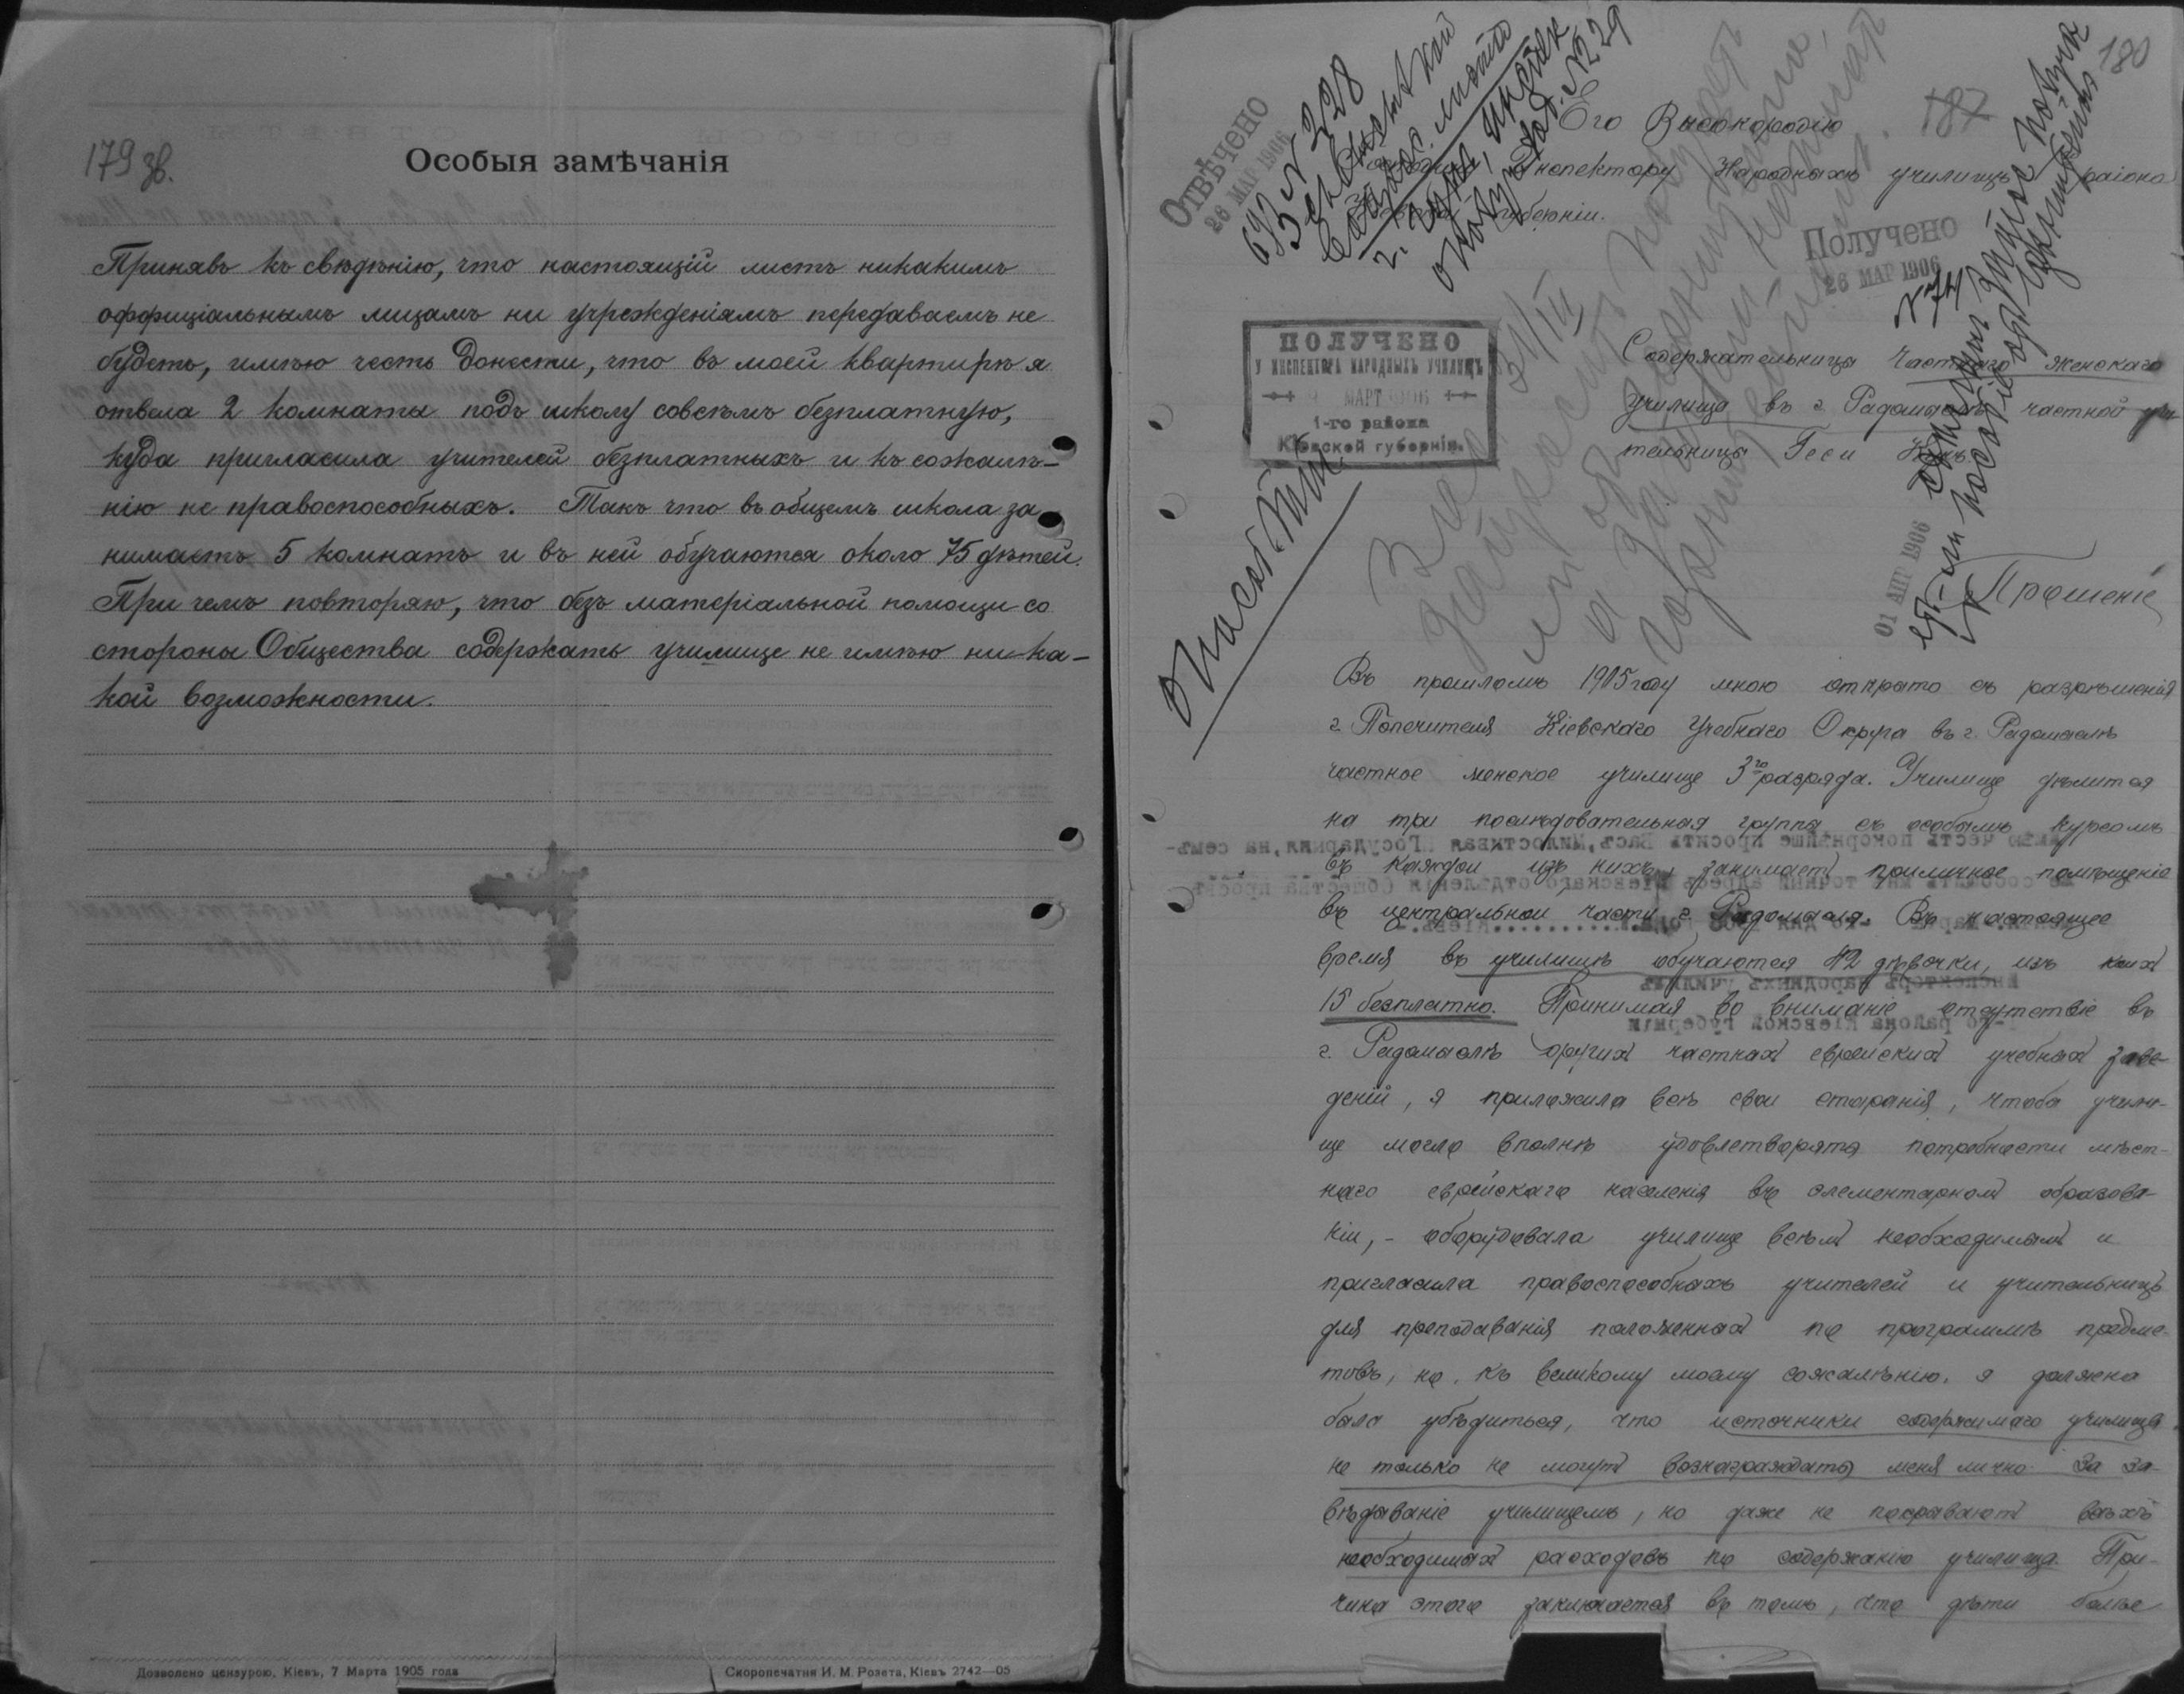 179 зв.
Особыя замѣчанія
Принявъ къ свѣдѣнію, что настоящій листъ никакимъ
оффиціальнымъ лицамъ ни учрежденіямъ передаваемъ не
будетъ, имѣю честь донести, что въ моей квартирѣ я
отвела 2 комнаты подъ школу совсѣмъ безплатную,
куда пригласила учителей безплатныхъ и къ сожалѣ-
нію не правоспособныхъ. Такъ что въ общемъ школа за
нимаетъ 5 комнатъ и въ ней обучаются около 75 дѣтей.
При чемъ повторяю, что безъ матеріальной помощи со
стороны Общества содержать училище не имѣю ника-
кой возможности.
Дозволено цензурою, Кіевъ, 7 Марта 1905 года
Скоропечатня И. М. Розета, Кіевъ 2742—05
180
187
ОТВѢЧЕНО
26 МАР 1906
693 N 228
N 229
Его Высокородію
Инспектору Народныхъ училищъ района
губерніи.
Получено
26 МАР 1906
N 74
31/III
ПОЛУЧЕНО
У ИНСПЕКТОРА НАРОДНЫХЪ УЧИЛИЩЪ
МАРТ 1906
1-го района
Кіевской губерніи.
Содержательницы частнаго женскаго
училища въ г. Радомыслѣ частной учи
тельницы Геси
01 АПР 1906
Прошеніе
Въ прошломъ 1905 году мною открыто съ разрѣшенія
г. Попечителя Кіевскаго Учебнаго Округа въ г. Радомыслѣ
частное женское училище 3го разряда. Училище дѣлится
на три послѣдовательныя группы съ особымъ курсомъ
въ каждой изъ нихъ, занимает приличное помѣщеніе
въ центральной части г. Радомысля. Въ настоящее
время въ училищѣ обучаются 42 дѣвочки, изъ коих
15 безплатно. Принимая во вниманіе отсутствіе въ
г. Радомыслѣ других частных еврейских учебных заве-
деній, я приложила всѣ свои старанія, чтобы учили-
ще могло вполнѣ удовлетворять потребности мѣст-
наго еврейскаго населенія въ элементарном образова-
ніи, - оборудовала училище всѣм необходимым и
пригласила правоспособныхъ учителей и учительницъ
для преподаванія положенных по программѣ предме-
товъ, но, къ великому моему сожалѣнію, я должна
была убѣдиться, что источники содержимаго училища
не только не могут вознаграждать меня лично за за-
вѣдываніе училищемъ, но даже не покрывают всѣхъ
необходимых расходовъ по содержанію училища. При-
чина этого заключается въ томъ, что дѣти болѣе